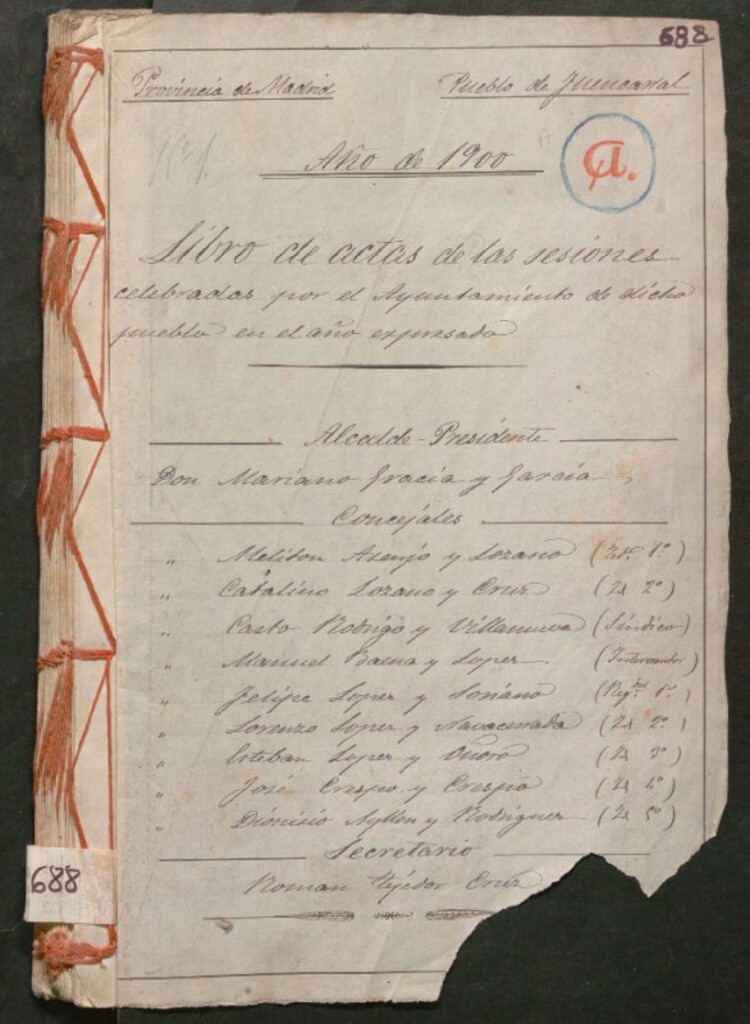 688
Provincia de Madrid Pueblo de Fuencarral
Nº 1.
Año de 1900
A.
Libro de actas de las sesiones
celebradas por el Ayuntamiento de dicho
pueblo en el año expresado
Alcalde-Presidente
Don Mariano Gracia y Garcia
Concejales
" Meliton Asenjo y Lozano (Tte. 1º)
" Catalino Lozano y Cruz (Id 2º)
" Casto Rodrigo y Villanueva (Síndico)
" Manuel Baena y Lopez (Interventor)
" Felipe Lopez y Soriano (Regor 1º)
" Lorenzo Lopez y Navacerrada (Id 2º)
" Esteban Lopez y (Id 3º)
" José Crespo y Crespo (Id 4º)
" Dionisio Ayllon y Rodriguez (Id 5º)
Secretario
Roman Tejedor Cruz
688